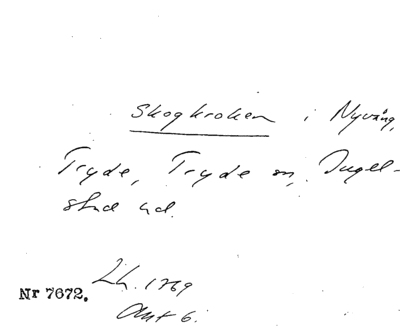 Skogkroken i Nyvång,
Tryde, Tryde sn, Ingel-
stad hd.
Lh. 1769
Nr 7672.
Akt 6.